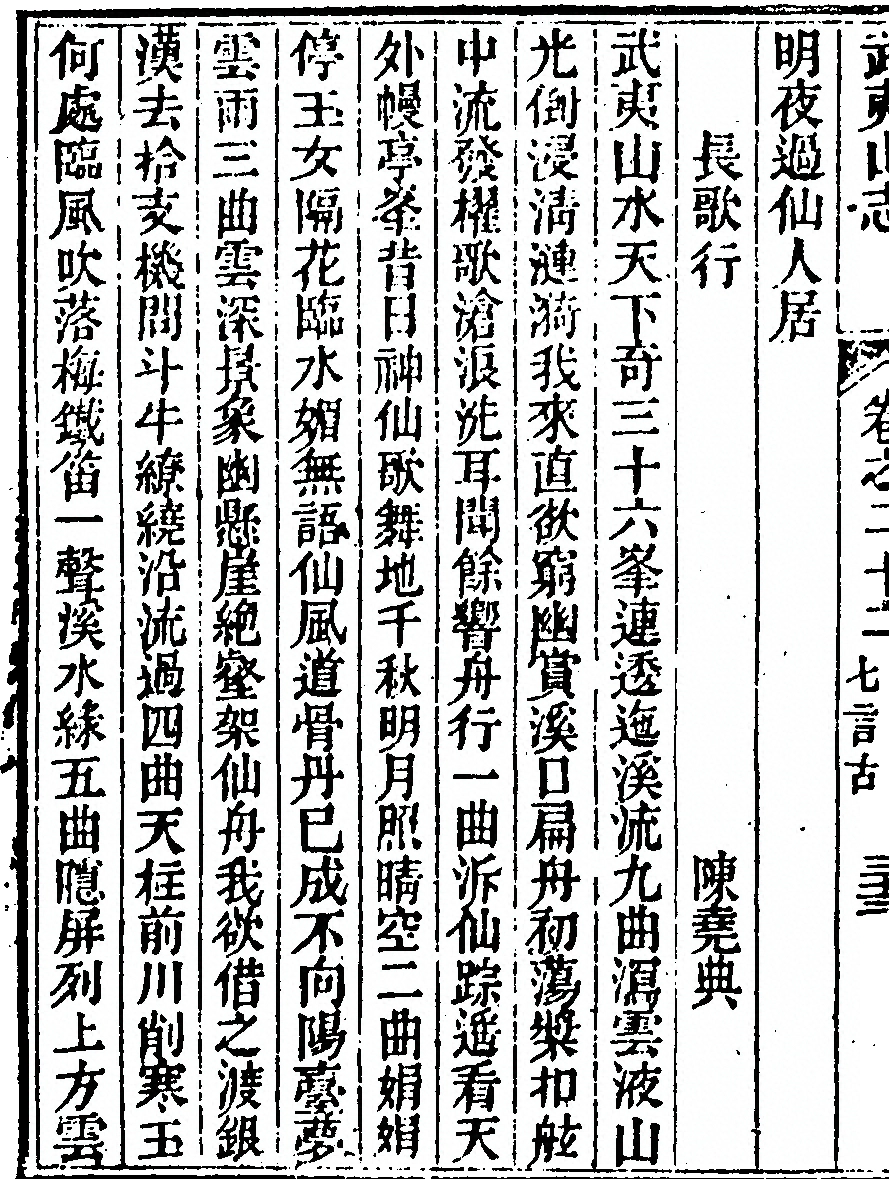 武夷山志 卷之二十二 七言古 三三
明夜過仙人居
長歌行 陳堯典
武夷山水天下奇三十六峯連透迤溪流九曲瀉雲液山
光倒浸清漣漪我來直欲窮幽賞溪口扁舟初蕩槳扣舷
中流發櫂歌滄浪洗耳聞餘響舟行一曲泝仙踪遥看天
外幔亭峯昔日神仙歌舞地千秋明月照晴空二曲娟娟
停玉女隔花臨水媚無語仙風道骨丹已成不向陽臺夢
雲雨三曲雲深景象幽懸崖絶壑架仙舟我欲借之渡銀
漢去拾支機問斗牛繚繞沿流過四曲天柱前川削寒玉
何處臨風吹落梅鐵笛一聲溪水緑五曲隱屏列上方雲